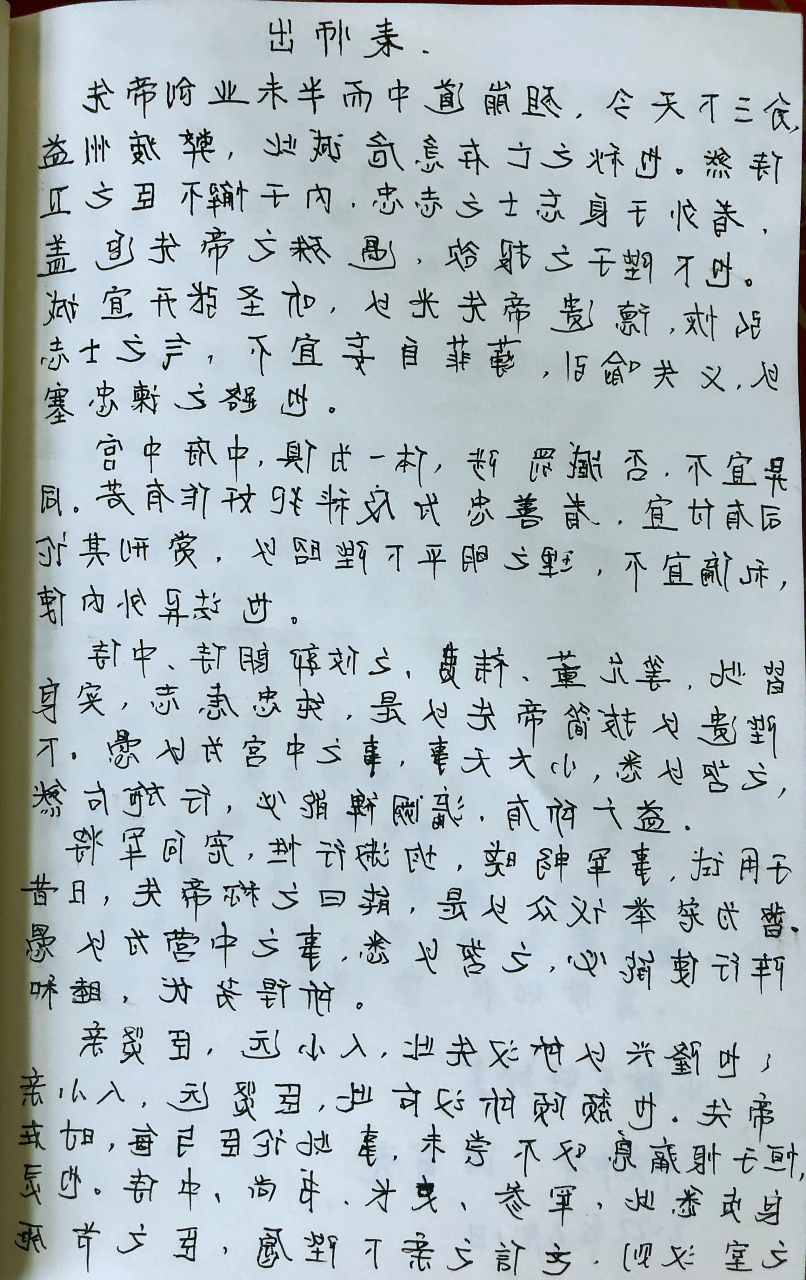 出师表.
先帝创业未半而中道崩殂，今天下三分，
益州疲弊，此诚危急存亡之秋也。然侍
卫之臣不懈于内，忠志之士忘身于外者，
盖追先帝之殊遇，欲报之于陛下也。
诚宜开张圣听，以光先帝遗德，恢弘
志士之气，不宜妄自菲薄，引喻失义，以
塞忠谏之路也。
宫中府中，俱为一体，陟罚臧否，不宜异
同。若有作奸犯科及为忠善者，宜付有司
论其刑赏，以昭陛下平明之理，不宜偏私，
使内外异法也。
侍中、侍郎郭攸之、费祎、董允等，此皆
良实，志虑忠纯，是以先帝简拔以遗陛
下。愚以为宫中之事，事无大小，悉以咨之，
然后施行，必能裨补阙漏，有所广益。
将军向宠，性行淑均，晓畅军事，试用于
昔日，先帝称之曰能，是以众议举宠为督。
愚以为营中之事，悉以咨之，必能使行阵
和睦，优劣得所。
亲贤臣，远小人，此先汉所以兴隆也；
亲小人，远贤臣，此后汉所以倾颓也。先帝
在时，每与臣论此事，未尝不叹息痛恨于桓
灵也。侍中、尚书、长史、参军，此悉贞良
死节之臣，愿陛下亲之信之，则汉室之